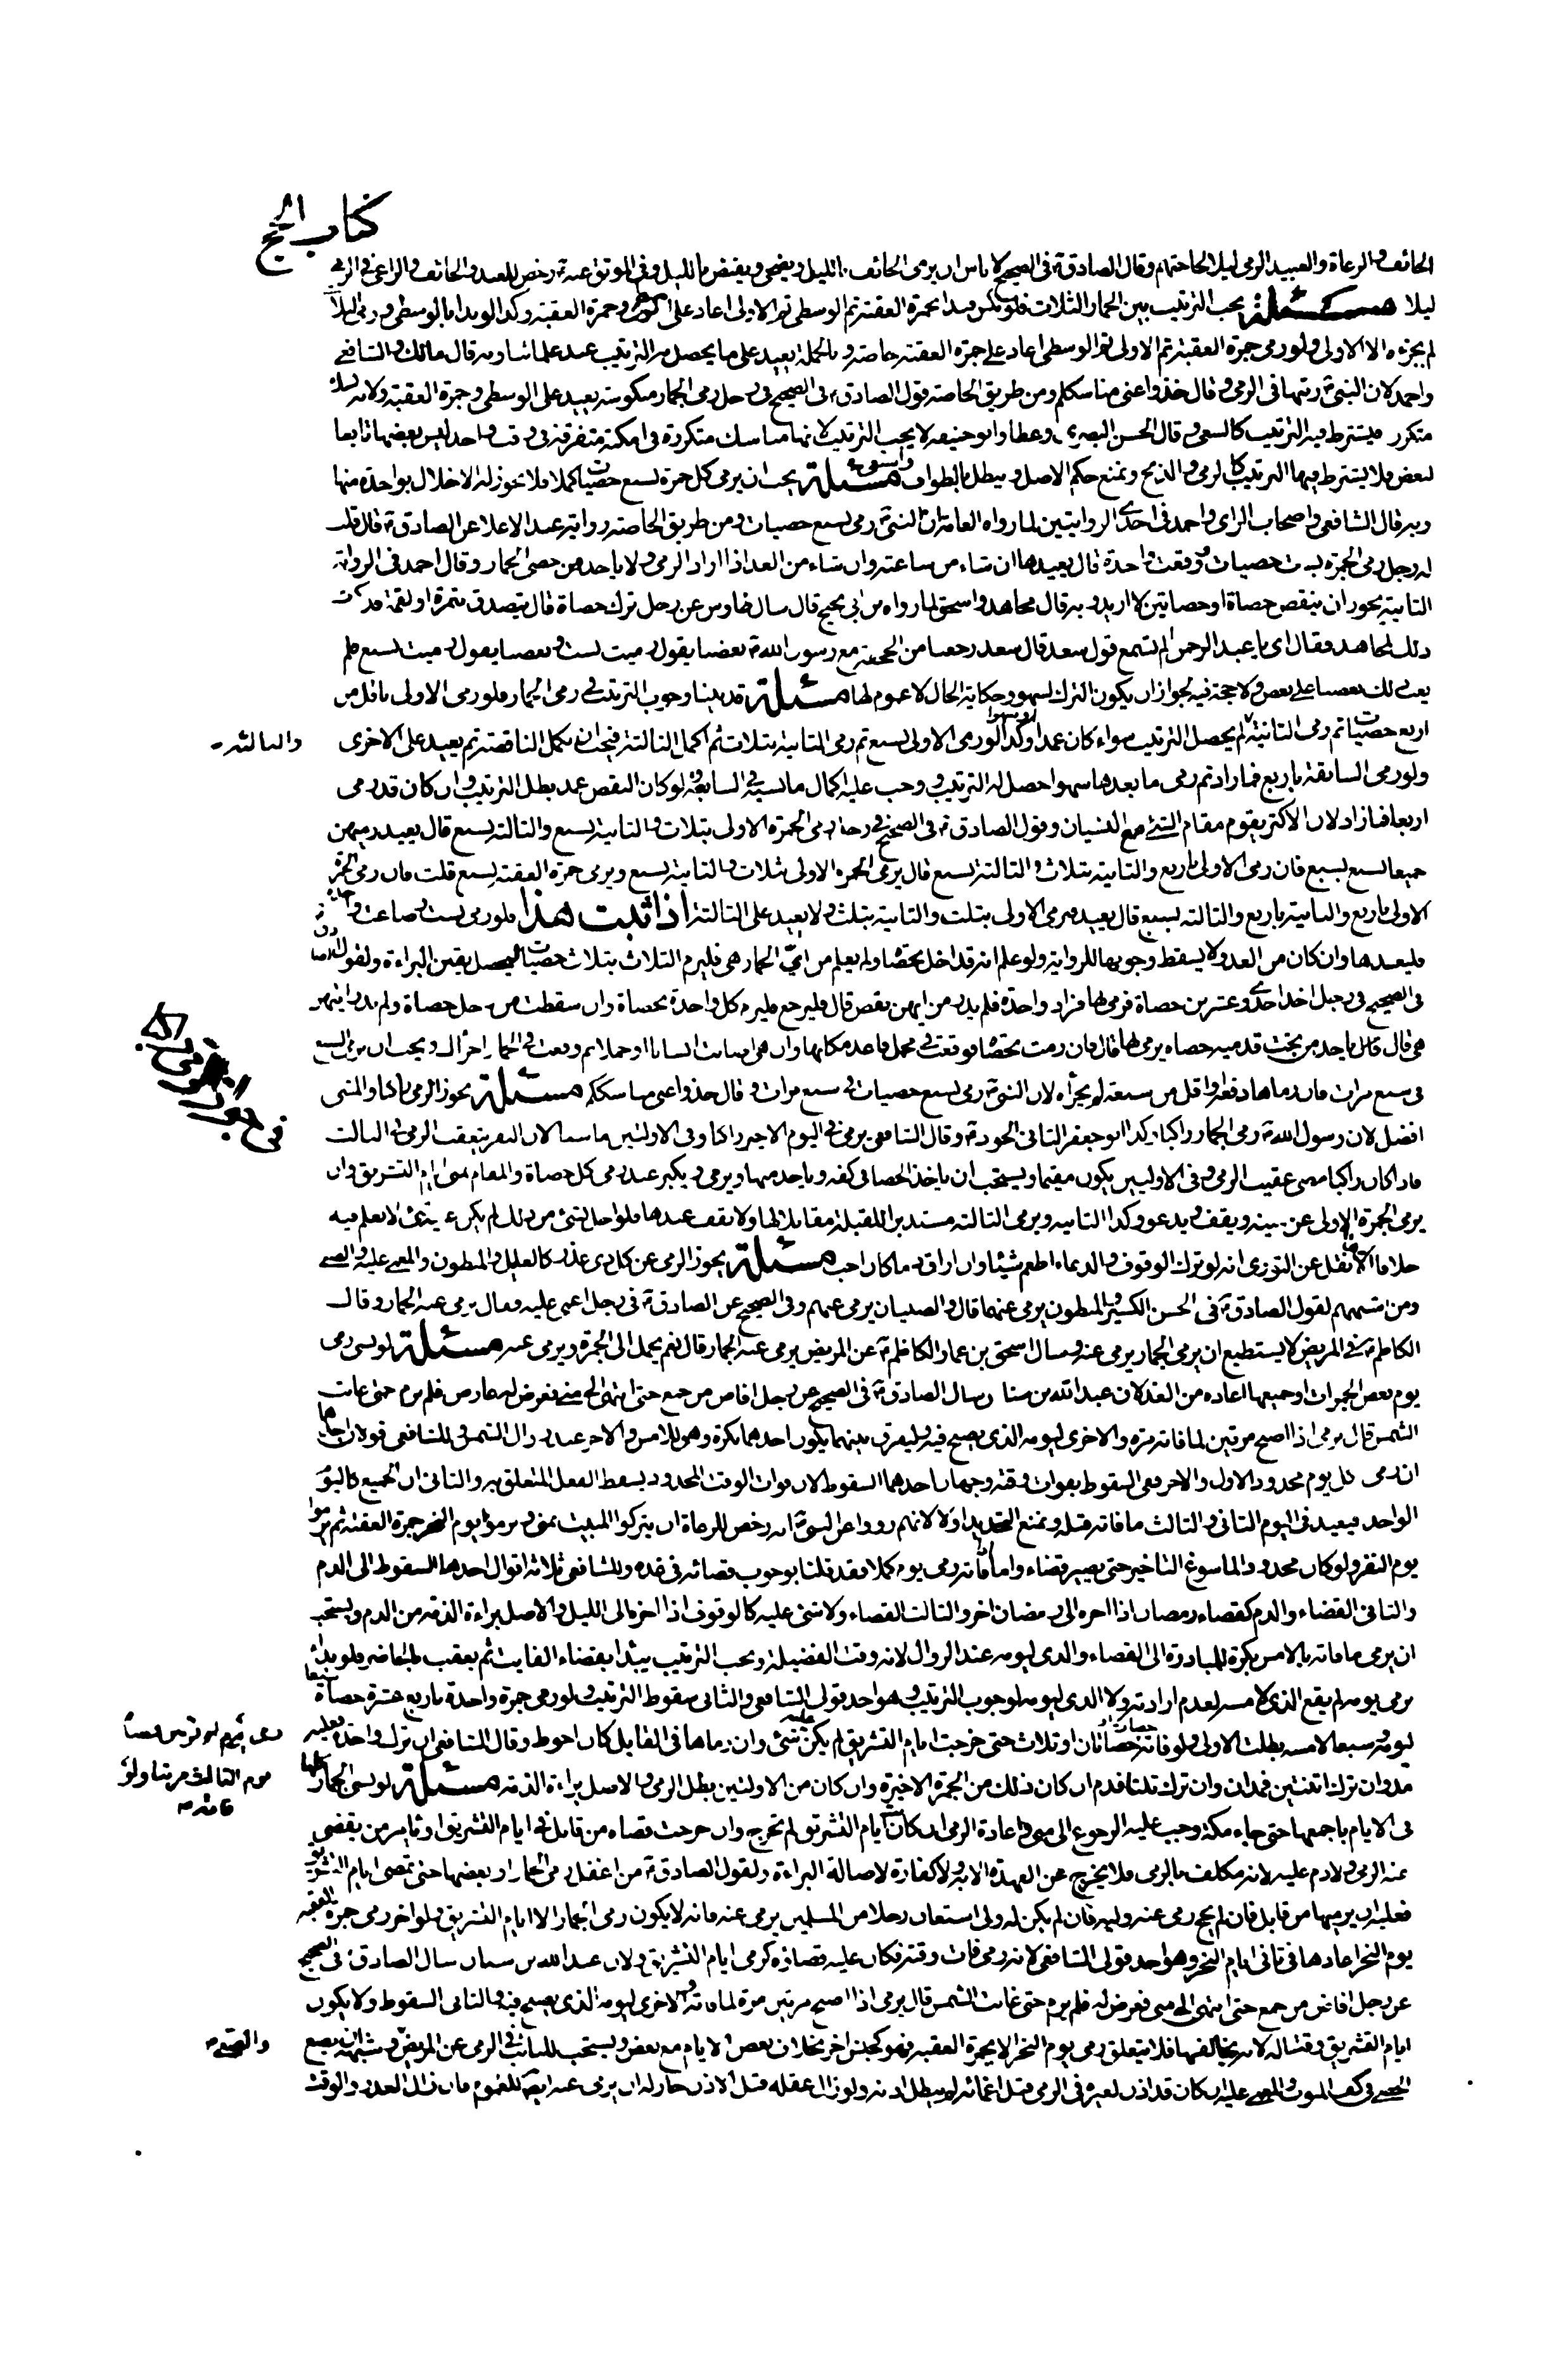 كتاب الحج
الخائف والرعاة والعبيد الرمي ليلا لحاجتهم وقال الصادق ع في الصحيح لا باس ان يرمي الخائف بالليل ويضحي ويفيض بالليل وفي الموثق عنه ع رخص للعبد والخائف والراعي في الرمي
ليلا مسئلة يجب الترتيب بين الجمار الثلاث فلو نكس فبدا بجمرة العقبة ثم الوسطى ثم الاولى اعاد على الوسطى وجمرة العقبة وكذا لو بدا بالوسطى ورمى الثلاث
لم يجزه الا الاولى ولو رمى جمرة العقبة ثم الاولى ثم الوسطى اعاد على جمرة العقبة خاصة وبالجملة يعيد على ما يحصل معه الترتيب عند علمائنا وبه قال مالك والشافعي
واحمد لان النبي ص رتبها في الرمي وقال خذوا عني مناسككم ومن طريق الخاصة قول الصادق ع في الصحيح في رجل رمى الجمار منكوسة يعيد على الوسطى وجمرة العقبة ولانه نسك
متكرر فيشترط فيه الترتيب كالسعي وقال الحسن البصري وعطا وابو حنيفة لا يجب الترتيب لانها مناسك متكررة في امكنة متفرقة في وقت واحد ليس بعضها تابعا
لبعض فلا يشترط فيها الترتيب كالرمي والذبح ونمنع حكم الاصل ويبطل بالطواف والسعي مسئلة يجب ان يرمي كل جمرة بسبع حصيات كملا فلا يجوز له الاخلال بواحدة منها
وبه قال الشافعي واصحاب الراي واحمد في احدى الروايتين لما رواه العامة ان النبي ص رمى بسبع حصيات ومن طريق الخاصة رواية عبد الاعلا عن الصادق ع قال قلت
له رجل رمى الجمرة بست حصيات ووقعت واحدة قال يعيدها ان شاء من ساعته وان شاء من الغد اذا اراد الرمي ولا ياخذ من حصى الجمار وقال احمد في الرواية
الثانية يجوز ان ينقص حصاة او حصاتين لا ازيد وبه قال مجاهد واسحق لما رواه ابن ابي نجيح قال سال طاوس عن رجل ترك حصاة قال يتصدق بتمرة او لقمة فذكرت
ذلك لمجاهد فقال ان ابا عبد الرحمن لم يسمع قول سعد قال سعد رجعنا من الحجة مع رسول الله ص بعضنا يقول رميت بست وبعضنا يقول رميت بسبع فلم
يعب ذلك بعضنا على بعض ولا حجة فيه لجواز ان يكون الترك لسهو وحكاية الحال لا عموم لها مسئلة قد بينا وجوب الترتيب في رمي الجمار فلو رمى الاولى باقل من
اربع حصيات ثم رمى الثانية لم يحصل الترتيب سواء كان عمدا او سهوا وكذا لو رمى الاولى بسبع ثم رمى الثانية بثلاث ثم اكمل الثالثة فيجب ان يكمل الناقصة ثم يعيد على الاخرى
والثالثة
ولو رمى السابقة باربع فما زاد ثم رمى ما بعدها سهوا حصل له الترتيب ووجب عليه اكمال ما نسيه في السابقة ولو كان النقص عمدا بطل الترتيب وان كان قد رمى
اربعا فما زاد لان الاكثر يقوم مقام الشيء مع النسيان وقول الصادق ع في الصحيح في رجل رمى الجمرة الاولى بثلاث والثانية بسبع والثالثة بسبع قال يعيد يرميهن
جميعا بسبع بسبع فان رمى الاولى باربع والثانية بثلاث والثالثة بسبع قال يرمي الجمرة الاولى بثلاث والثانية بسبع ويرمي جمرة العقبة بسبع قلت فان رمى الجمرة
الاولى باربع والثانية باربع والثالثة بسبع قال يعيد فيرمي الاولى بثلث والثانية بثلث ولا يعيد على الثالثة اذا ثبت هذا فلو رمى بست وضاعت واحدة
فليعدها وان كان من الغد ولا يسقط وجوبها للرواية ولو علم انه قد اخل بحصاة ولم يعلم من اي الجمار هي فليرم الثلاث بثلاث حصيات ليحصل يقين البراءة ولقول الصادق ع
في الصحيح في رجل اخذ احدى وعشرين حصاة فرمى بها فزاد واحدة فلم يدر من ايهن نقص قال فليرجع فليرم كل واحدة بحصاة وان سقطت من رجل حصاة ولم يدر ايتهن
هي قال ياخذ من تحت قدميه حصاة يرمي بها قال فان رميت بحصاة فوقعت في محمل فاعد مكانها وان هي اصابت انسانا او جملا ثم وقعت في الجمار اجزاك ويجب ان يرمي السبع
في سبع مرات فان رماها دفعة او اقل من سبعة لم يجزأه لان النبي ص رمى بسبع حصيات في سبع مرات وقال خذوا عني مناسككم مسئلة يجوز الرمي راكبا والمشي
افضل لان رسول الله ص رمى الجمار راكبا وكذا ابو جعفر الثاني الجواد ع وقال الشافعي يرمي في اليوم الاخير راكبا وفي الاولتين ماشيا لان النفر يتعقب الرمي في الثالث
فاذا كان راكبا مضى عقيب الرمي وفي الاوليين يكون مقيما ويستحب ان ياخذ الحصا في كفه وياخذ منها ويرمي ويكبر عند رمي كل حصاة والمقام بمنى ايام التشريق وان
يرمي الجمرة الاولى عن يمينه ويقف ويدعو وكذا الثانية ويرمي الثالثة مستدبرا للقبلة مقابلا لها ولا يقف عندها فلو اخل بشيء من ذلك لم يكن عليه شيء لا نعلم فيه
خلافا الا ما نقل عن الثوري انه لو ترك الوقوف والدعاء اطعم شيئا وان اراق دما كان احب مسئلة يجوز الرمي عن كل ذي عذر كالعليل والمبطون والمغمى عليه والصبي
ومن اشبههم لقول الصادق ع في الحسن الكسير والمبطون يرمي عنهما قال والصبيان يرمي عنهم وفي الصحيح عن الصادق ع في رجل اغمي عليه فقال يرمي عنه الجمار وقال
الكاظم ع في المريض لا يستطيع ان يرمي الجمار يرمي عنه وسال اسحق بن عمار الكاظم ع عن المريض يرمي عنه الجمار قال نعم يحمل الى الجمرة ويرمي عنه مسئلة لو نسي رمي
يوم بعض الجمرات او جميعها اعاده من الغد لان عبد الله بن سنان سال الصادق ع في الصحيح عن رجل افاض من جمع حتى انتهى الى منى فعرض له عارض فلم يرم حتى غابت
الشمس قال يرمي اذا اصبح مرتين لما فاته مرة والاخرى ليومه الذي يصبح فيه وليفرق بينهما يكون احدهما بكرة وهو للامس والاخر عند زوال الشمس وللشافعي قولان احدهما
ان رمي كل يوم محدود الاول والاخر ففي السقوط بفوات وقته وجهان احدهما السقوط لان فوات الوقت المحدود يسقط الفعل المتعلق به والثاني ان الجميع كاليوم
الواحد فيعيد في اليوم الثاني والثالث ما فاته قبله ونمنع التحديد اولا لانهم رووا عن النبي ص انه رخص للرعاة ان يتركوا المبيت بمنى ويرموا يوم النحر جمرة العقبة ثم يرموا
يوم النفر ولو كان محدودا لما سوغ التاخير حتى يصير قضاء واما لو فاته رمي يوم كملا فقد قلنا بوجوب قضائه في غده وللشافعي ثلاثة اقوال احدها السقوط الى الدم
والثاني القضاء والدم كقضاء رمضان اذا اخره الى رمضان اخر والثالث القضاء ولا شيء عليه كالوقوف اذا اخره الى الليل والاصل براءة الذمة من الدم ويستحب
ان يرمي ما فاته بالامس بكرة للمبادرة الى القضاء والذي ليومه عند الزوال لانه وقت الفضيلة ويجب الترتيب يبدا بقضاء الفايت ثم يعقب بالحاضر فلو بدا
برمي يومه لم يقع الذي لامسه لعدم ارادته ولا الذي ليومه لوجوب الترتيب وهو احد قولي الشافعي والثاني سقوط الترتيب ولو رمى جمرة واحدة باربع عشرة حصاة سبعا
ليومه وسبعا لامسه بطلت الاولى ولو فاته حصاة او حصاتان او ثلاث حتى خرجت ايام التشريق لم يكن عليه شيء وان رماها في القابل كان احوط وقال الشافعي ان ترك واحدة فعليه
مد وان ترك اثنتين فمدان وان ترك ثلثا فدم ان كان ذلك من الجمرة الاخيرة وان كان من الاولتين بطل الرمي والاصل براءة الذمة مسئلة لو نسي الجمار كلها
في الايام باجمعها حتى جاء مكة وجب عليه الرجوع الى منى واعادة الرمي ان كان ايام التشريق لم تخرج وان خرجت قضاه من قابل في ايام التشريق او يامر من يقضي
عنه الرمي ولا دم عليه لانه مكلف بالرمي فلا يخرج عن العهدة الا به ولا كفارة لاصالة البراءة ولقول الصادق ع من اغفل رمي الجمار او بعضها حتى تمضي ايام التشريق
فعليه ان يرميها من قابل فان لم يحج رمى عنه وليه فان لم يكن له ولي استعان رجلا من المسلمين يرمي عنه فانه لا يكون رمي الجمار الا ايام التشريق ولو اخر رمي جمرة العقبة
يوم النحر اعادها في ثاني ايام النحر وهو احد قولي الشافعي لانه رمي فات وقته فكان عليه قضاؤه كرمي ايام التشريق ولان عبد الله بن سنان سال الصادق ع في الصحيح
عن رجل افاض من جمع حتى انتهى الى منى فعرض له فلم يرم حتى غابت الشمس قال يرمي اذا اصبح مرتين مرة لما فاته والاخرى ليومه الذي يصبح فيه والثاني السقوط ولا يكون
ايام التشريق وقتا له لانه يخالفها فلا يتعلق رمي يوم النحر الا بجمرة العقبة فهو كجنس اخر بخلاف بعض الايام مع بعض ويستحب للنائب في الرمي عن المريض وشبهه ان يضع
والصبي
الحصى في كف المنوب والمغمى عليه ان كان قد اذن لغيره في الرمي قبل اغمائه لم يبطل اذنه ولو زال عقله قبل الاذن جاز له ان يرمي عنه ايضا للعموم فان زال العذر والوقت